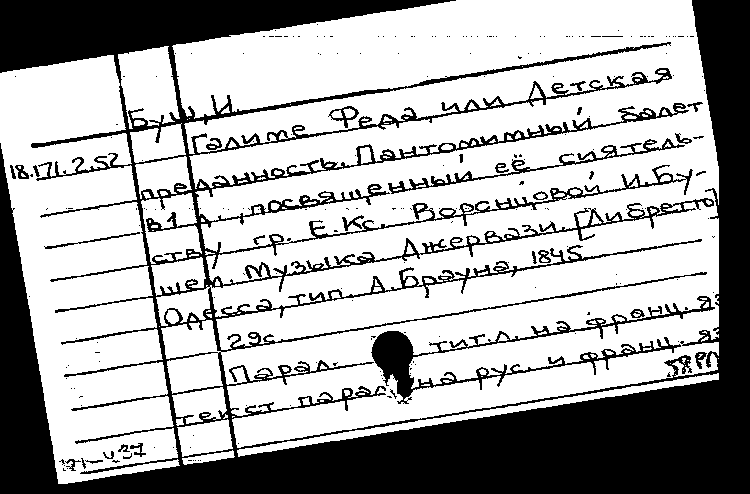 Буш, И.
18.171.2.52 Галиме Феда, или Детская
преданность. Пантомимный балет
в 1 д., посвященный её сиятель-
ству гр. Е.Кс. Воронцовой И.Бу-
шем. Музыка Джервази. [Либретто]
Одесса, тип. А. Брауна, 1845
29с.
Парал. тит.л. на франц. яз
текст парал. на рус. и франц. яз